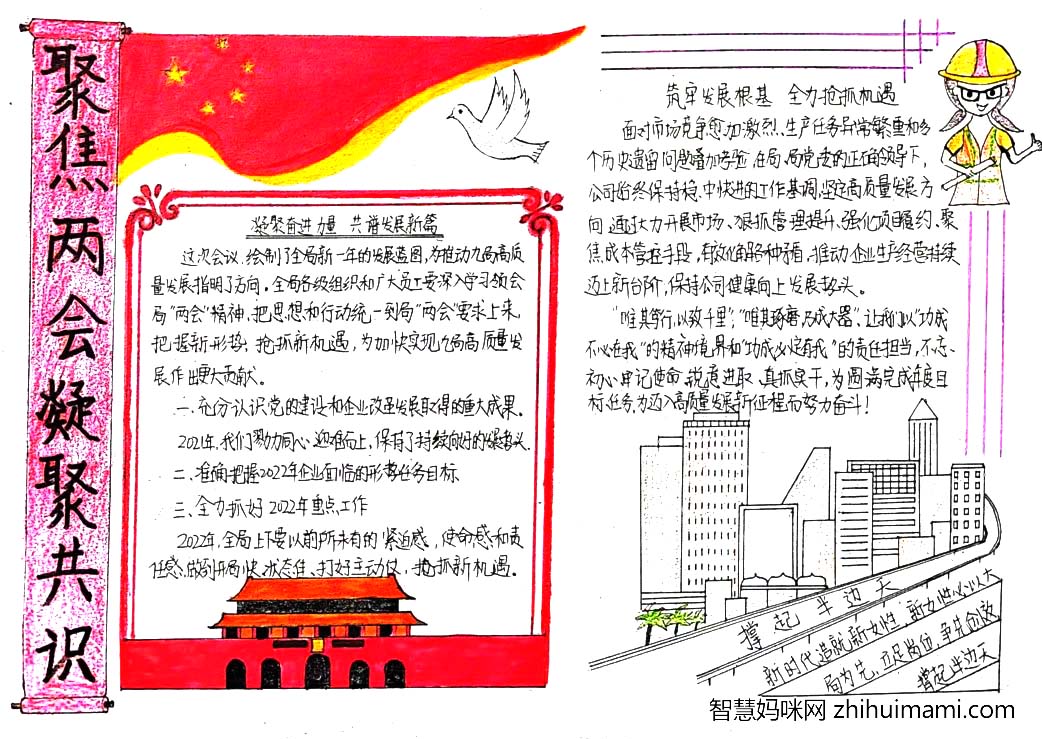 聚焦两会凝聚共识
凝聚奋进力量 共谱发展新篇
这次会议，绘制了全局新一年的发展蓝图，为推动九局高质
量发展指明了方向。全局各级组织和广大员工要深入学习领会
局“两会”精神，把思想和行动统一到局“两会”要求上来，
把握新形势，抢抓新机遇，为加快实现九局高质量发
展作出更大贡献。
一、充分认识党的建设和企业改革发展取得的重大成果。
2021年，我们勠力同心、迎难而上，保有了持续向好的发展势头.
二、准确把握2022年企业面临的形势任务目标
三、全力抓好2022年重点工作
2022年，全局上下要以前所未有的紧迫感，使命感和责
任感，做到开局快、状态佳、打好主动仗，抢抓新机遇。
筑牢发展根基 全力抢抓机遇
面对市场竞争愈加激烈、生产任务异常繁重和多
个历史遗留问题叠加考验，在局、局党委的正确领导下，
公司始终保持稳中快进的工作基调，坚定高质量发展方
向，通过大力开展市场、狠抓管理提升、强化项目履约、聚
焦成本管控手段，有效化解各种矛盾，推动企业生产经营持续
迈上新台阶，保持公司健康向上发展势头。
“唯其笃行，以致千里”，“唯其琢磨，乃成大器”，让我们以“功成
不必在我”的精神境界和“功成必定有我”的责任担当，不忘
初心、牢记使命、锐意进取、真抓实干，为圆满完成年度目
标任务，为迈入高质量发展新征程而努力奋斗！
撑起半边天
新时代造就新女性，新女性心以大
局为先，立足岗位，争先创效
撑起半边天
智慧妈咪网 zhihuimami.com